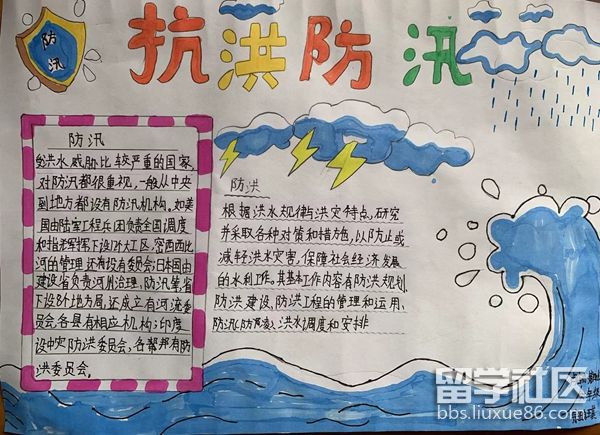 防汛
抗洪防汛
防汛
受洪水威胁比较严重的国家,
对防汛都很重视,一般从中央
到地方都设有防汛机构。如美
国由陆军工程兵团负责全国调度
和指挥,下设工区,密西西比
河的管理还有设有委员会;日本国由
建设省负责河川治理、防汛等,省
下设8个地方局,还成立有河流委
员会,各县有相应机构;印度
设中央防洪委员会,各帮邦有防
洪委员会。
防洪
根据洪水规律与洪灾特点,研究
并采取各种对策和措施,以防止或
减轻洪水灾害,保障社会经济发展
的水利工作。其基本工作内容有防洪规划、
防洪建设、防洪工程的管理和运用、
防汛(防凌)、洪水调度和安排
留学社区
bbs.liuxue86.com